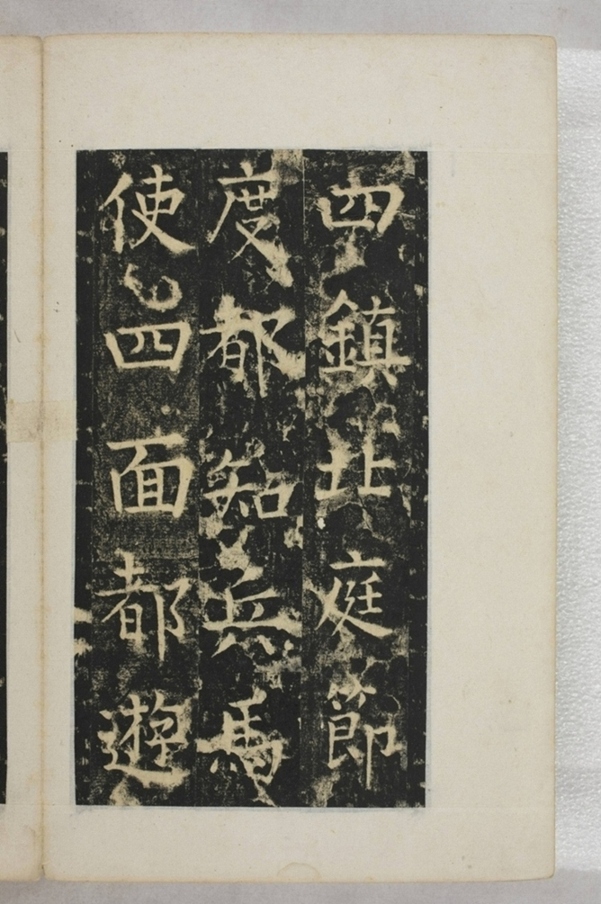 四鎮北庭節
度都知兵馬
使四面都遊